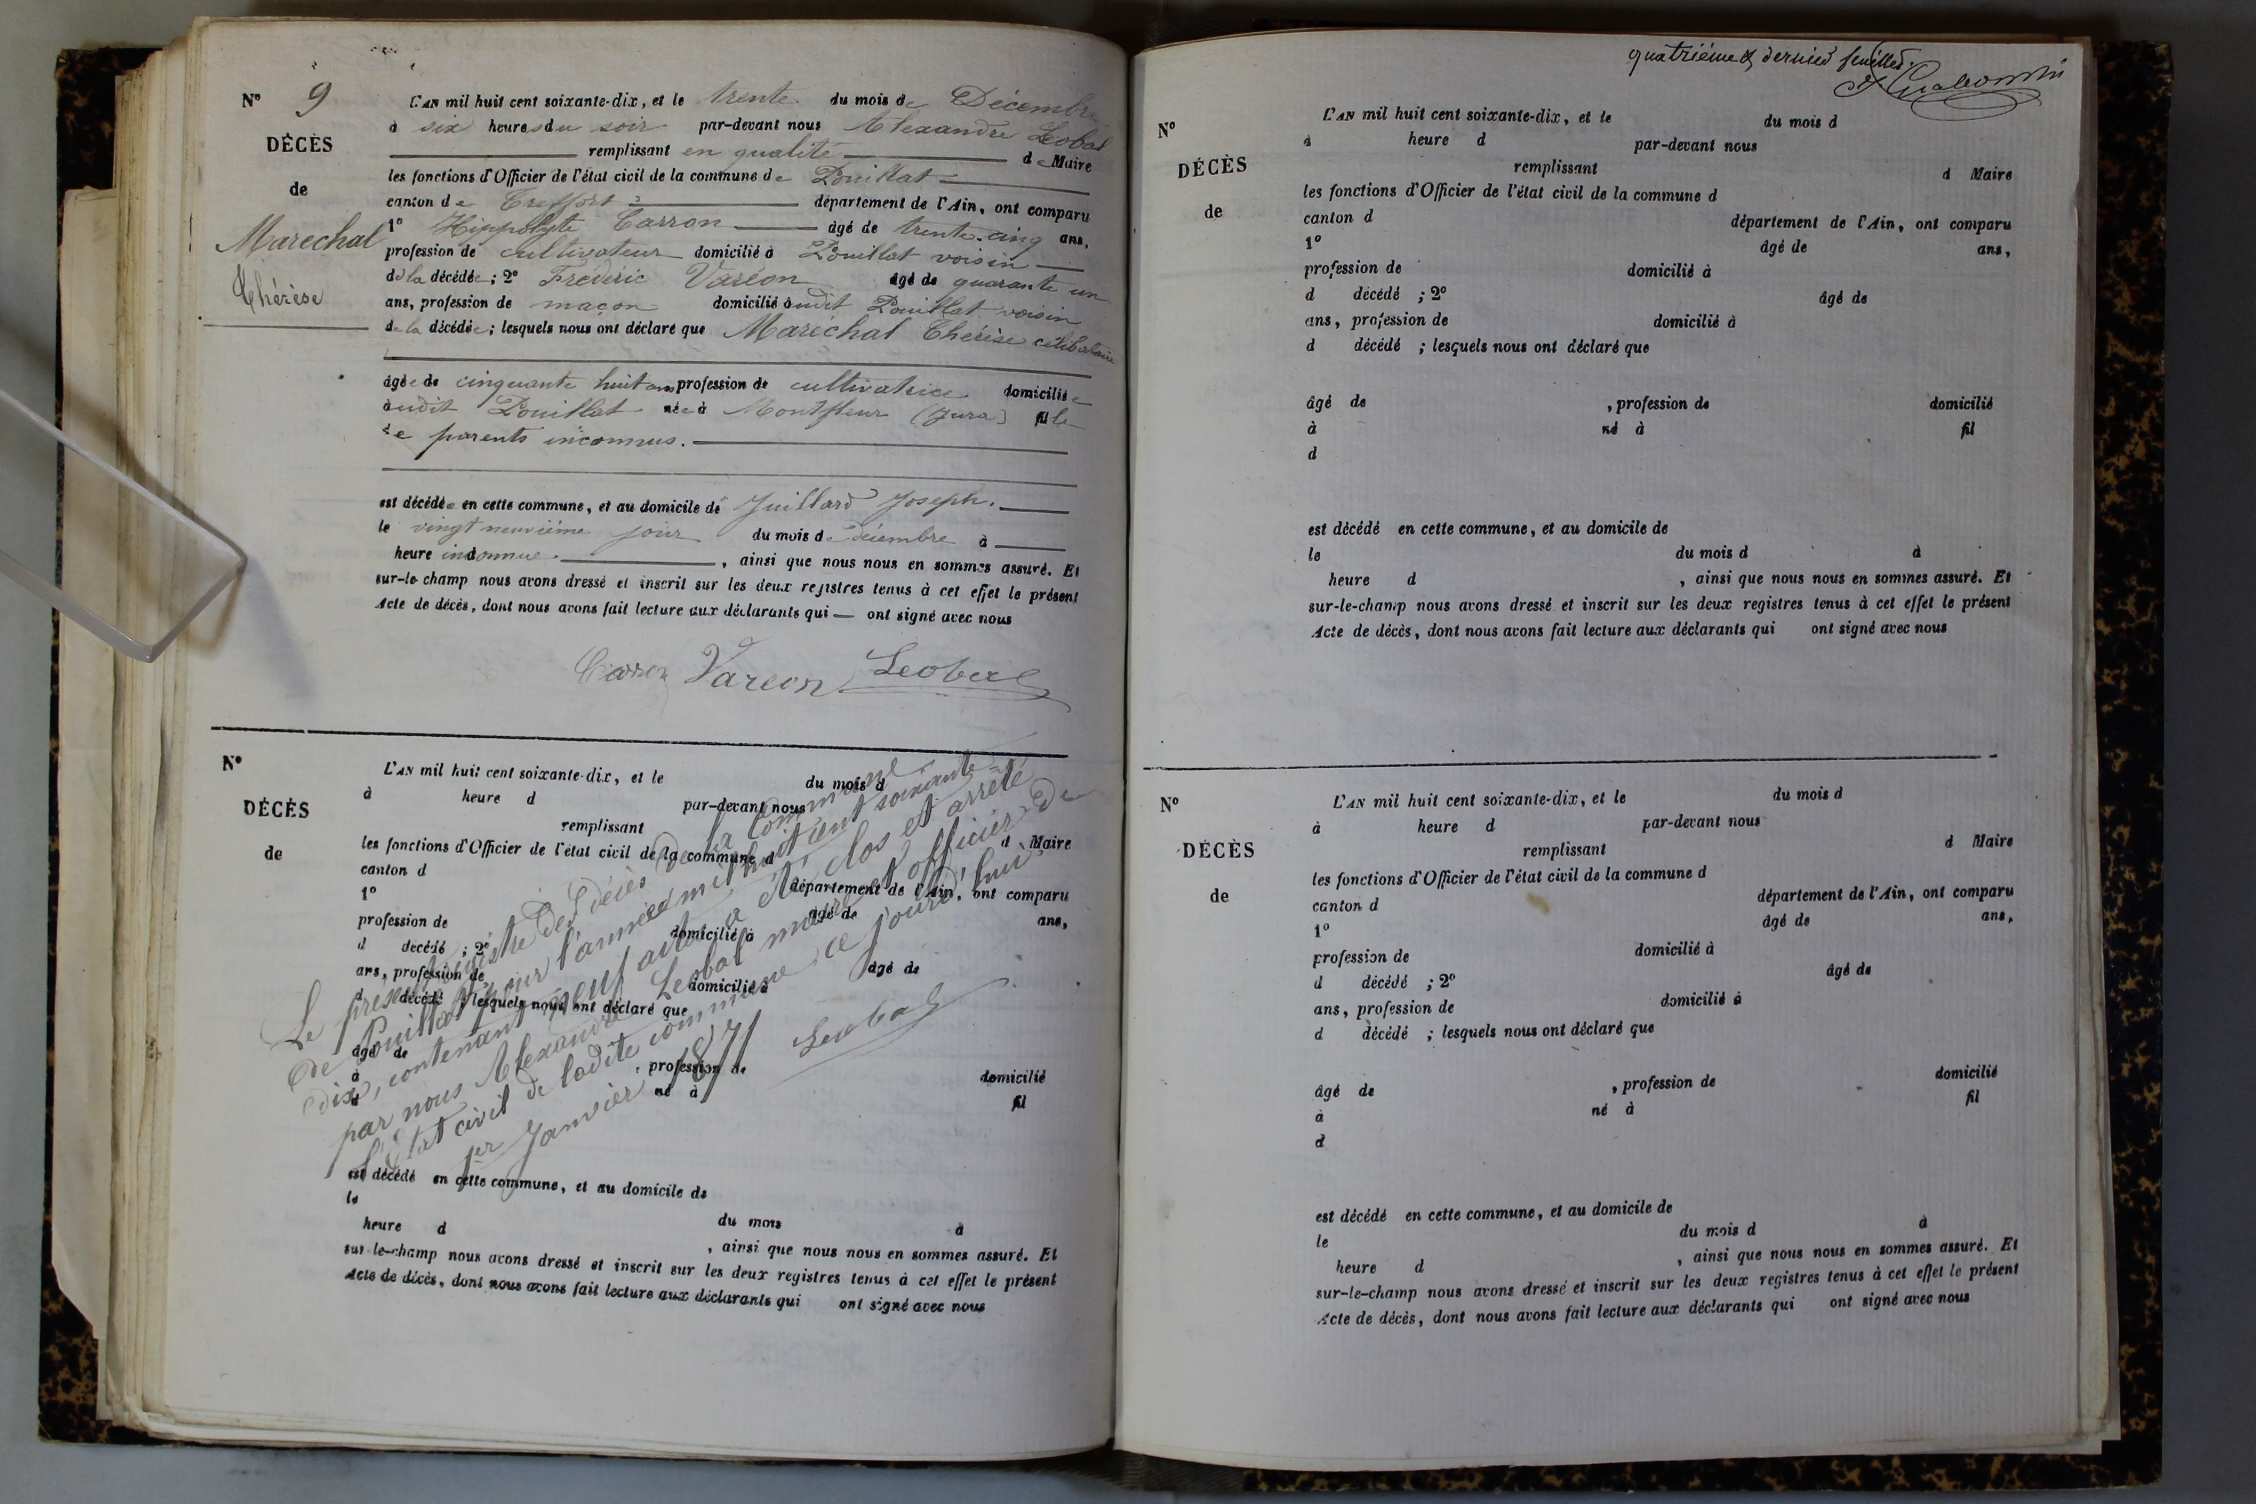 N° 9
DÉCÈS
de
Maréchal
Thérèse
L'AN mil huit cent soixante-dix, et le trente du mois de Décembre
à six heures du soir par-devant nous Alexandre Leobal
remplissant en qualité de Maire
les fonctions d'Officier de l'état civil de la commune de Pouillat
canton de Treffort département de l'Ain, ont comparu
1° Hippolyte Carron âgé de trente-cinq ans,
profession de cultivateur domicilié à Pouillat voisin
de la décédée; 2° Frédéric Varéon âgé de quarante un
ans, profession de maçon domicilié audit Pouillat voisin
de la décédée; lesquels nous ont déclaré que Maréchal Thérèse célibataire
âgée de cinquante huit ans profession de cultivatrice domiciliée
audit Pouillat née à Montfleur (Jura) fille
de parents inconnus.
est décédée en cette commune, et au domicile de Juillard Joseph.
le vingt neuvième jour du mois de décembre à
heure inconnue. , ainsi que nous nous en sommes assuré. Et
sur-le-champ nous avons dressé et inscrit sur les deux registres tenus à cet effet le présent
Acte de décès, dont nous avons fait lecture aux déclarants qui ont signé avec nous
Carron Vareon Leobal
N°
DÉCÈS
de
L'AN mil huit cent soixante-dix, et le du mois d
à heure d par-devant nous
remplissant d Maire
les fonctions d'Officier de l'état civil de la commune d
canton d département de l'Ain, ont comparu
1° âgé de ans,
profession de domicilié à
d décédé ; 2° âgé de
ans, profession de domicilié à
d décédé ; lesquels nous ont déclaré que
âgé de , profession de domicilié
à né à fil
d
est décédé en cette commune, et au domicile de
le du mois d à
heure d , ainsi que nous nous en sommes assuré. Et
sur-le-champ nous avons dressé et inscrit sur les deux registres tenus à cet effet le présent
Acte de décès, dont nous avons fait lecture aux déclarants qui ont signé avec nous
Le présent registre des décès de la commune
de Pouillat pour l'année mil huit cent soixante-
dix, contenant neuf actes a été clos et arrêté
par nous Alexandre Leobal maire et officier de
l'état civil de ladite commune ce jourd'hui
1er Janvier 1871
Leobal
quatrième & dernier feuillet.
N°
DÉCÈS
de
L'AN mil huit cent soixante-dix, et le du mois d
à heure d par-devant nous
remplissant d Maire
les fonctions d'Officier de l'état civil de la commune d
canton d département de l'Ain, ont comparu
1° âgé de ans,
profession de domicilié à
d décédé ; 2° âgé de
ans, profession de domicilié à
d décédé ; lesquels nous ont déclaré que
âgé de , profession de domicilié
à né à fil
d
est décédé en cette commune, et au domicile de
le du mois d à
heure d , ainsi que nous nous en sommes assuré. Et
sur-le-champ nous avons dressé et inscrit sur les deux registres tenus à cet effet le présent
Acte de décès, dont nous avons fait lecture aux déclarants qui ont signé avec nous
N°
DÉCÈS
de
L'AN mil huit cent soixante-dix, et le du mois d
à heure d par-devant nous
remplissant d Maire
les fonctions d'Officier de l'état civil de la commune d
canton d département de l'Ain, ont comparu
1° âgé de ans,
profession de domicilié à
d décédé ; 2° âgé de
ans, profession de domicilié à
d décédé ; lesquels nous ont déclaré que
âgé de , profession de domicilié
à né à fil
d
est décédé en cette commune, et au domicile de
le du mois d à
heure d , ainsi que nous nous en sommes assuré. Et
sur-le-champ nous avons dressé et inscrit sur les deux registres tenus à cet effet le présent
Acte de décès, dont nous avons fait lecture aux déclarants qui ont signé avec nous